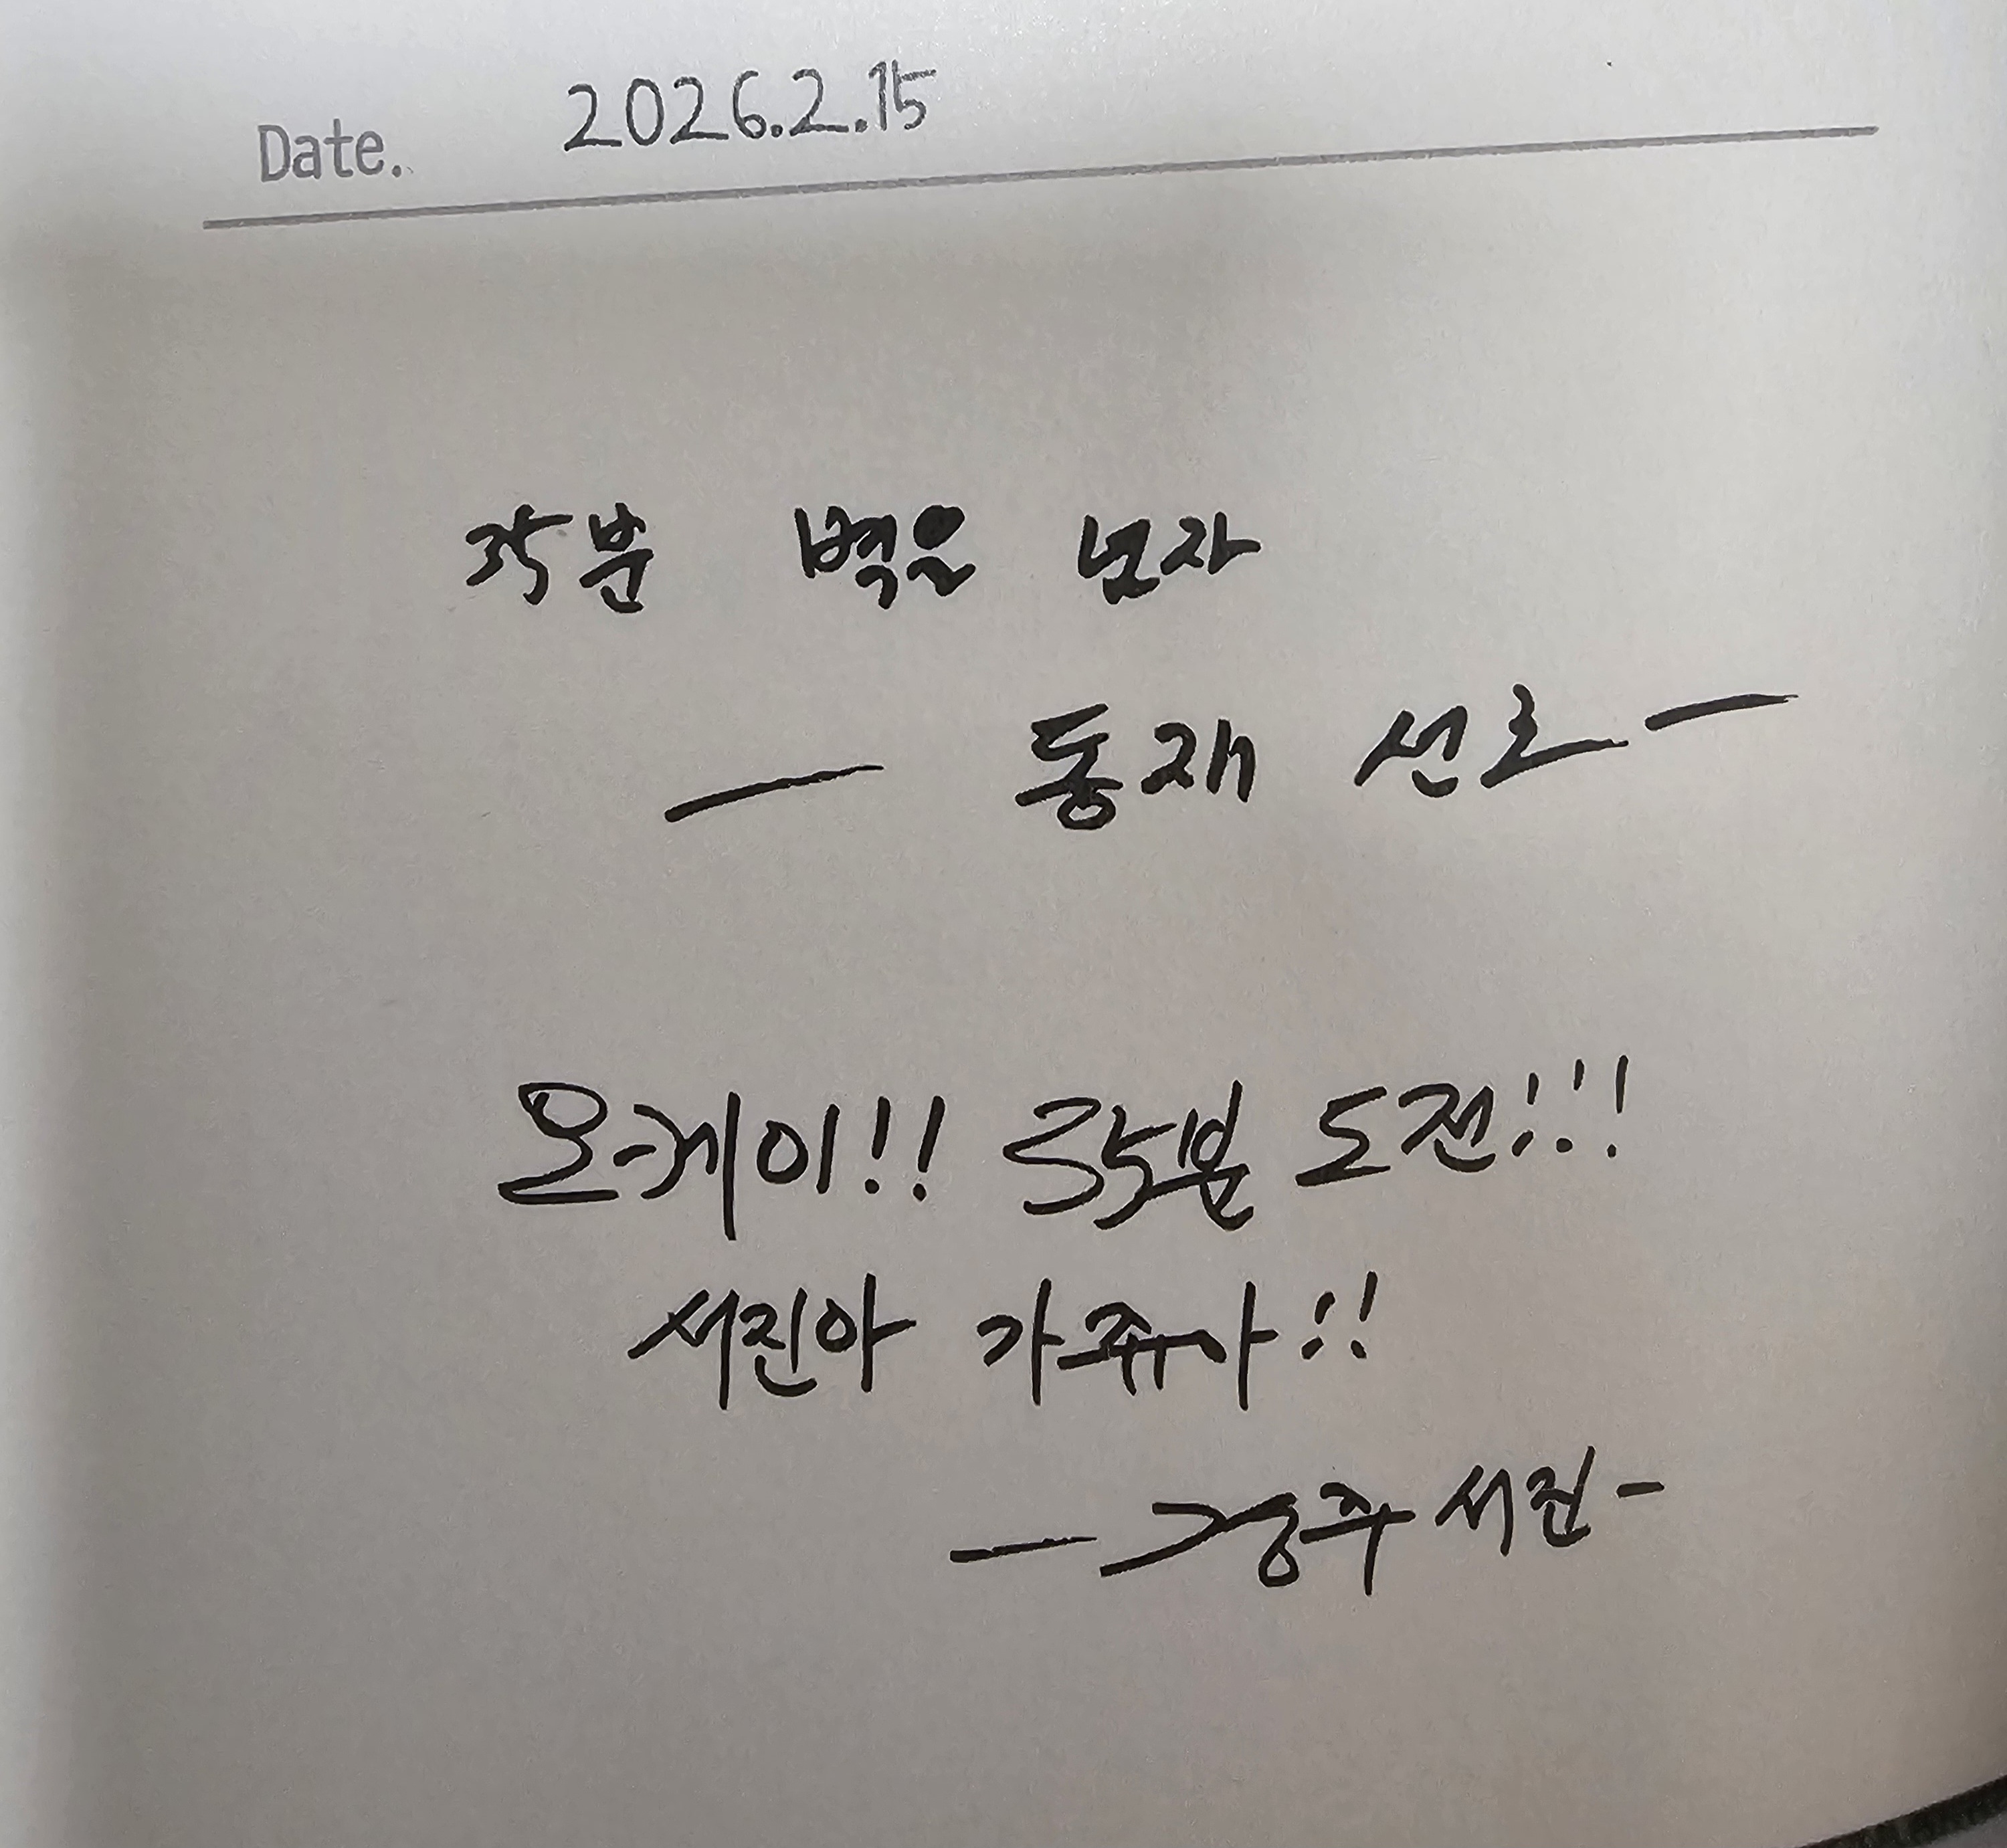 Date. 2026.2.15
35분 벽은 넘자
— 동재 선호 —
오케이!! 35분 도전!!!
서진아 가쥬아!!
— 경주 서진 -